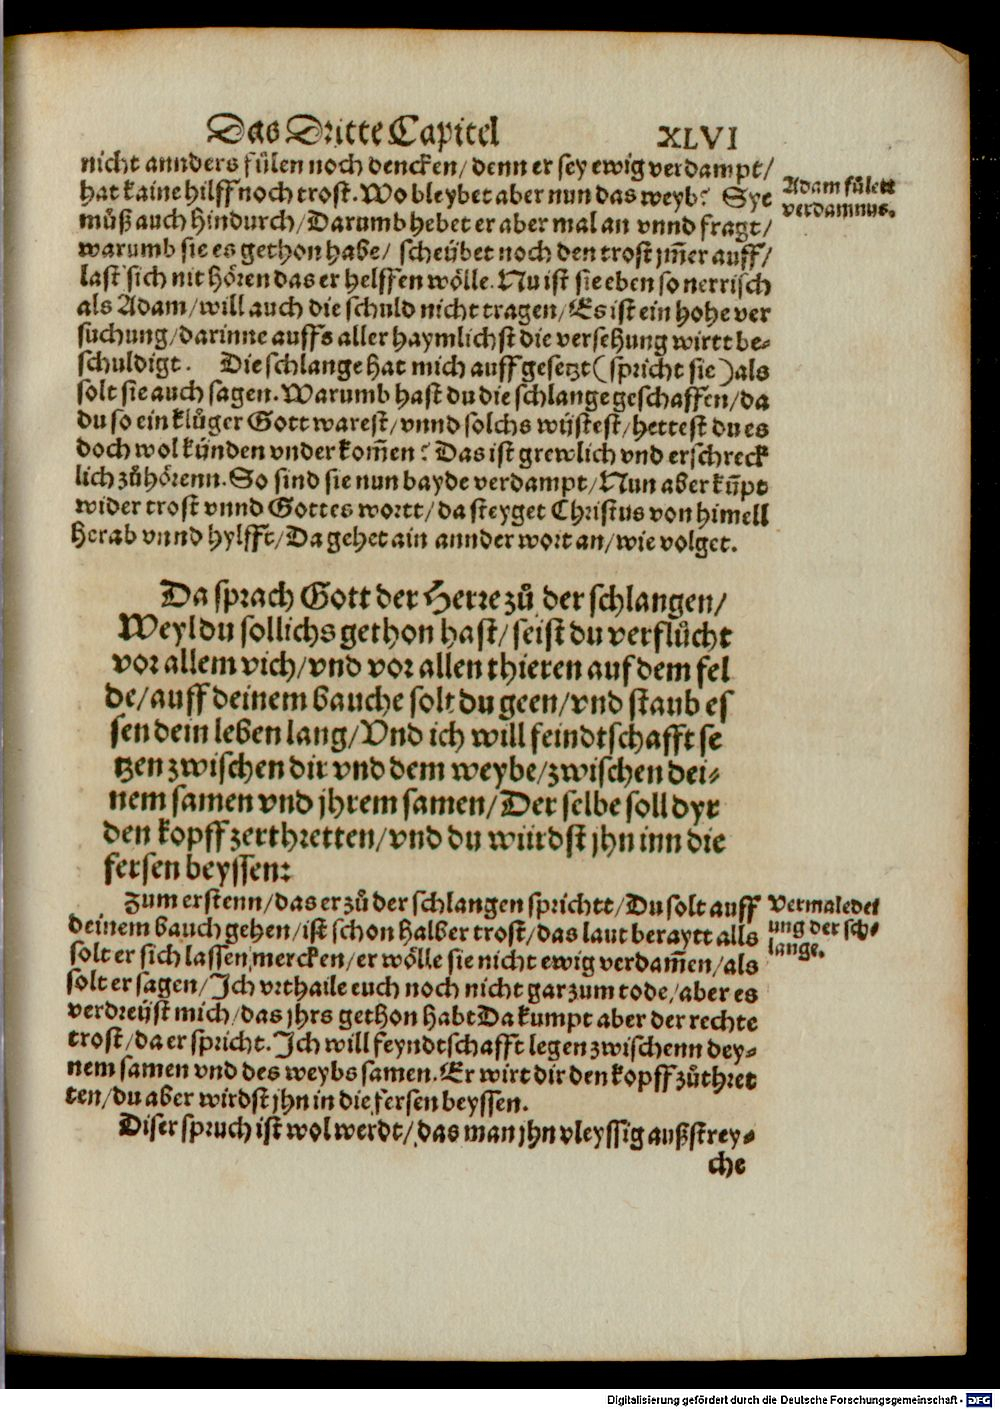 Das Dritte Capitel XLVI
nicht annders fülen noch dencken/ denn er sey ewig verdampt/
hat kaine hilff noch trost. Wo bleybet aber nun das weyb? Sye
müß auch hindurch/ Darumb hebet er aber mal an vnnd fragt/
warumb sie es gethon habe/ scheübet noch den trost jm̃er auff/
last sich nit hören das er helffen wölle. Nu ist sie eben so nerrisch
als Adam/ will auch die schuld nicht tragen/ Es ist ein hohe ver
sůchung/ darinne auffs aller haymlichst die versehung wirtt be-
schuldigt. Die schlange hat mich auff gesetzt (spricht sie) als
solt sie auch sagen. Warumb hast du die schlange geschaffen/ da
du so ein klůger Gott warest/ vnnd solchs wijstest/ hettest du es
doch wol künden vnderkom̃en? Das ist grewlich vnd erschreck
lich zů hörenn. So sind sie nun bayde verdampt/ Nun aber kum̃pt
wider trost vnnd Gottes wortt/ da steyget Christus von himell
herab vnnd hylfft/ Da gehet ain annder wort an/ wie volget.
Adam fülett
verdamnus.
Da sprach Gott der Herre zů der schlangen/
Weyl du sollichs gethon hast/ seist du verflůcht
vor allem vich/ vnd vor allen thieren auf dem fel
de/ auff deinem bauche solt du geen/ vnd staub es
sen dein leben lang/ Vnd ich will feindtschafft se
tzen zwischen dir vnd dem weybe/ zwischen dei-
nem samen vnd jhrem samen/ Der selbe soll dyr
den kopff zerthretten/ vnd du würdst jhn inn die
fersen beyssen:
Zum erstenn/ das er zů der schlangen sprichtt/ Du solt auff
deinem bauch gehen/ ist schon halber trost/ das laut beraytt alls
solt er sich lassen mercken/ er wölle sie nicht ewig verdam̃en/ als
solt er sagen/ Ich vrthaile euch noch nicht gar zum tode/ aber es
verdreüst mich/ das jhrs gethon habt Da kumpt aber der rechte
trost/ da er spricht. Ich will feyndtschafft legen zwischenn dey-
nem samen vnd des weybs samen. Er wirt dir den kopff zůthret
ten/ du aber wirdst jhn in die fersen beyssen.
Vermaledei
ung der sch-
lange.
Diser spruch ist wol werdt/ das man jhn vleyssig außstrey-
che
Digitalisierung gefördert durch die Deutsche Forschungsgemeinschaft - DFG